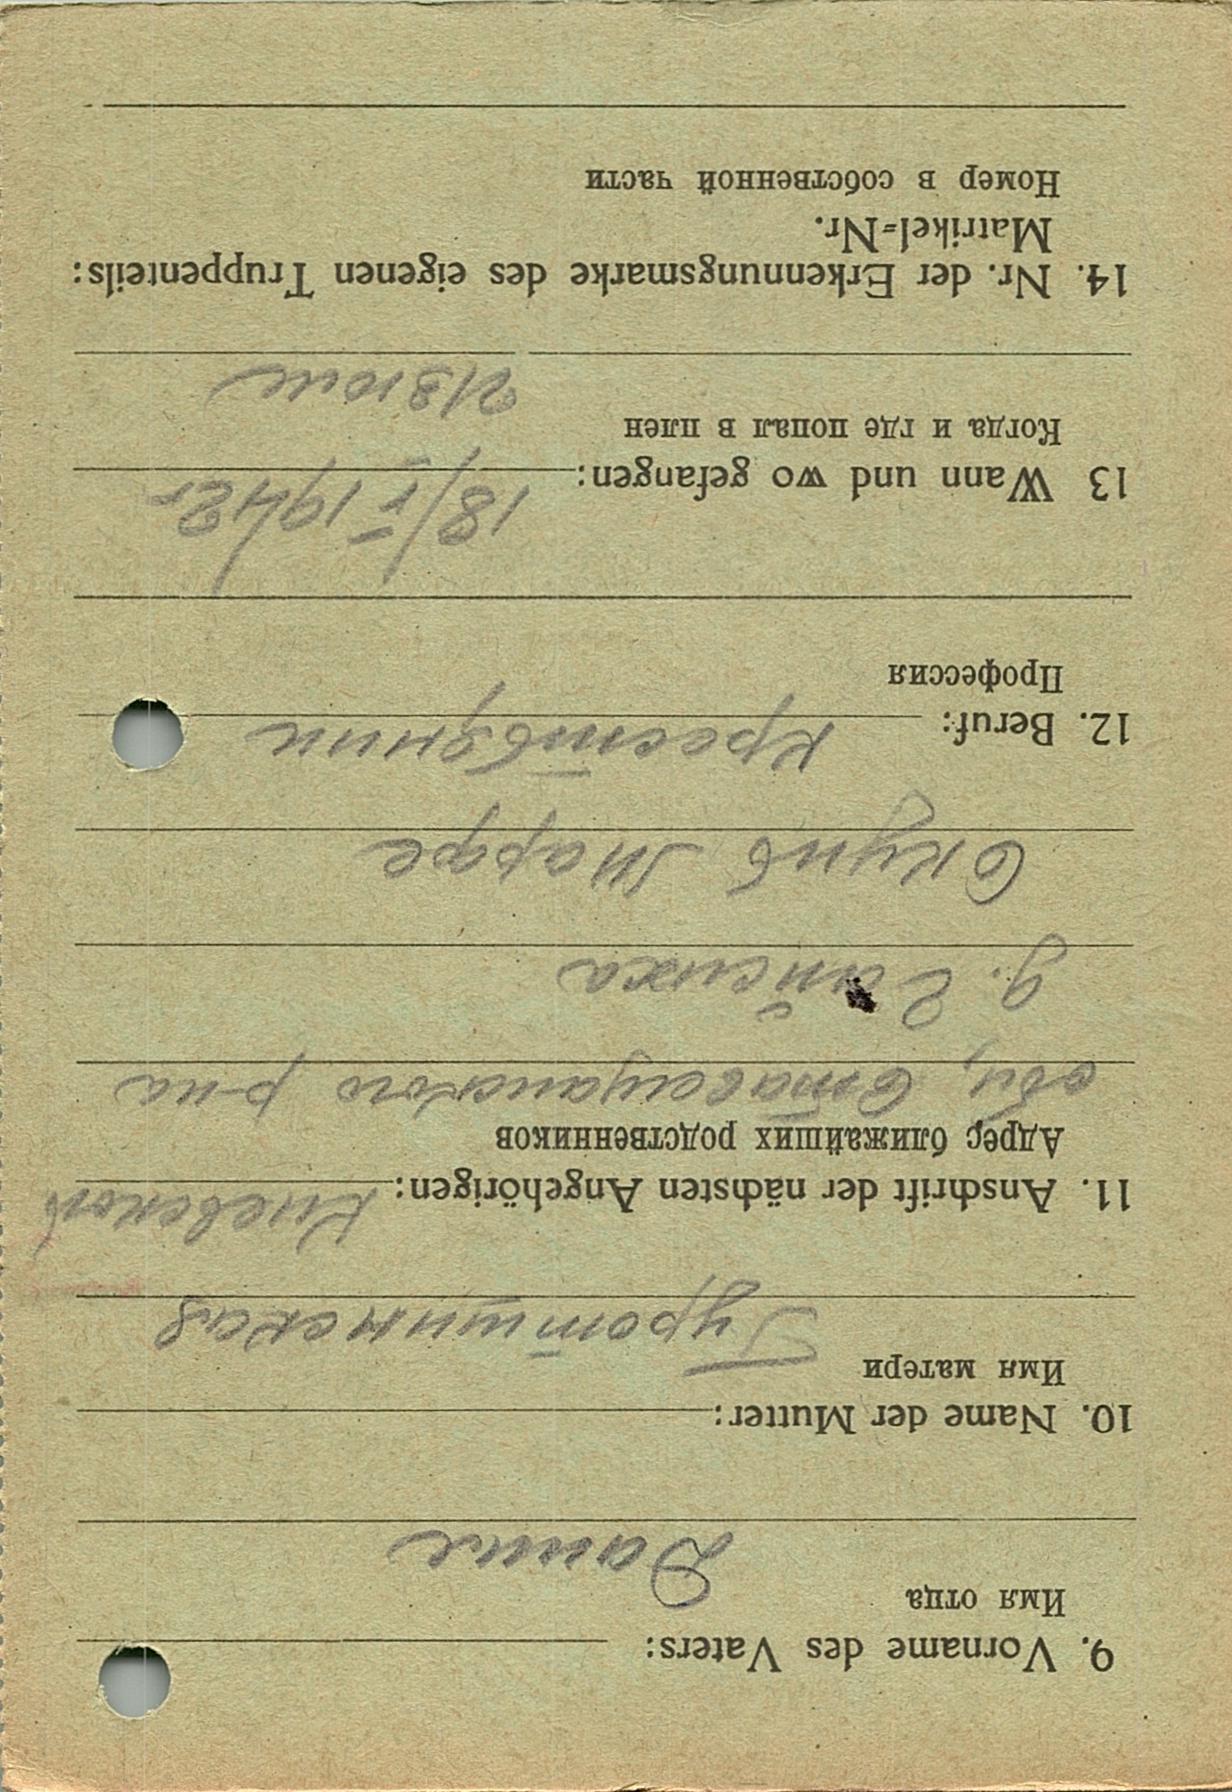 9. Vorname des Vaters:
Имя отца
Данил
10. Name der Mutter:
Имя матери
11. Anschrift der nächsten Angehörigen: Киевской
Адрес ближайших родственников
обл, р-на
д.
Скупь Марфе
12. Beruf: Крестьянин
Профессия
13 Wann und wo gefangen: 18/V 1942г
Когда и где попал в плен
Изюм
14. Nr. der Erkennungsmarke des eigenen Truppenteils:
Matrikel=Nr.
Номер в собственной части